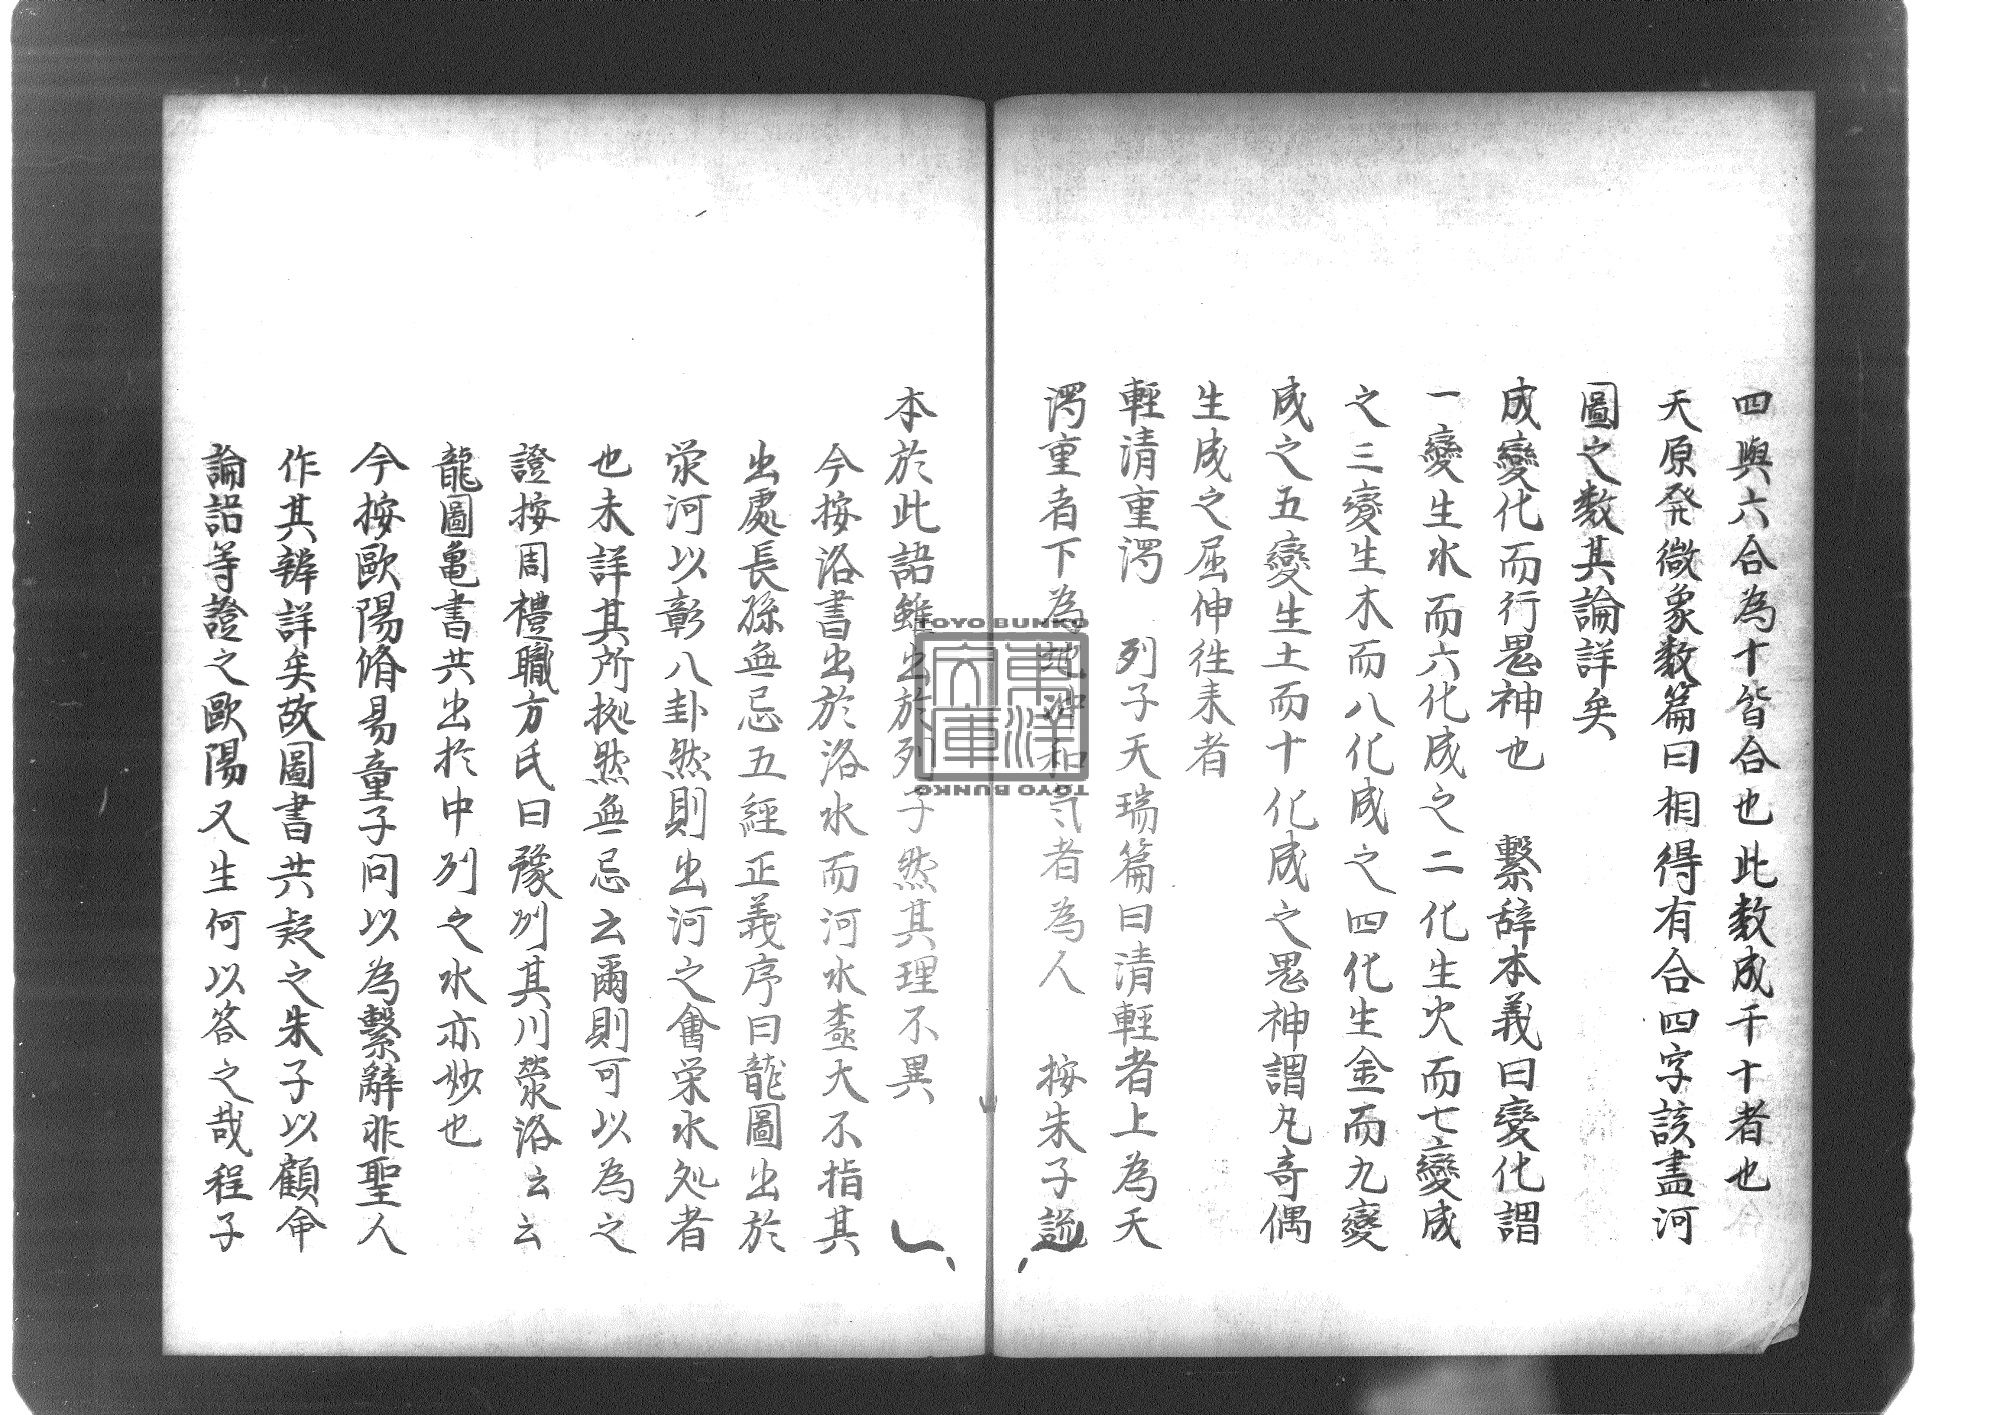 四與六合為十皆合也此数成千十者也
天原発微象数篇曰相得有合四字該盡河
圖之数其論詳矣
成變化而行鬼神也　繫辞本義曰變化謂
一變生水而六化成之二化生火而七變成
之三變生木而八化成之四化生金而九變
成之五變生土而十化成之鬼神謂凡奇偶
生成之屈伸往来者
輕清重濁　列子天瑞篇曰清輕者上為天
濁重者下為地冲和气者為人　按朱子説
本於此語雖出於列子然其理不異
今按洛書出於洛水而河水壺大不指其
出處長孫無忌五經正義序曰龍圖出於
荣河以彰八卦然則出河之會荣水処者
也未詳其所拠然無忌云爾則可以為之
證按周禮職方氏曰豫州其川滎洛云云
龍圖亀書共出於中列之水亦妙也
今按歐陽脩易童子问以為繫辭非聖人
作其辨詳矣故圖書共疑之朱子以顧命
論語等證之歐陽又生何以答之哉程子
TOYO BUNKO
東洋文庫
TOYO BUNKO